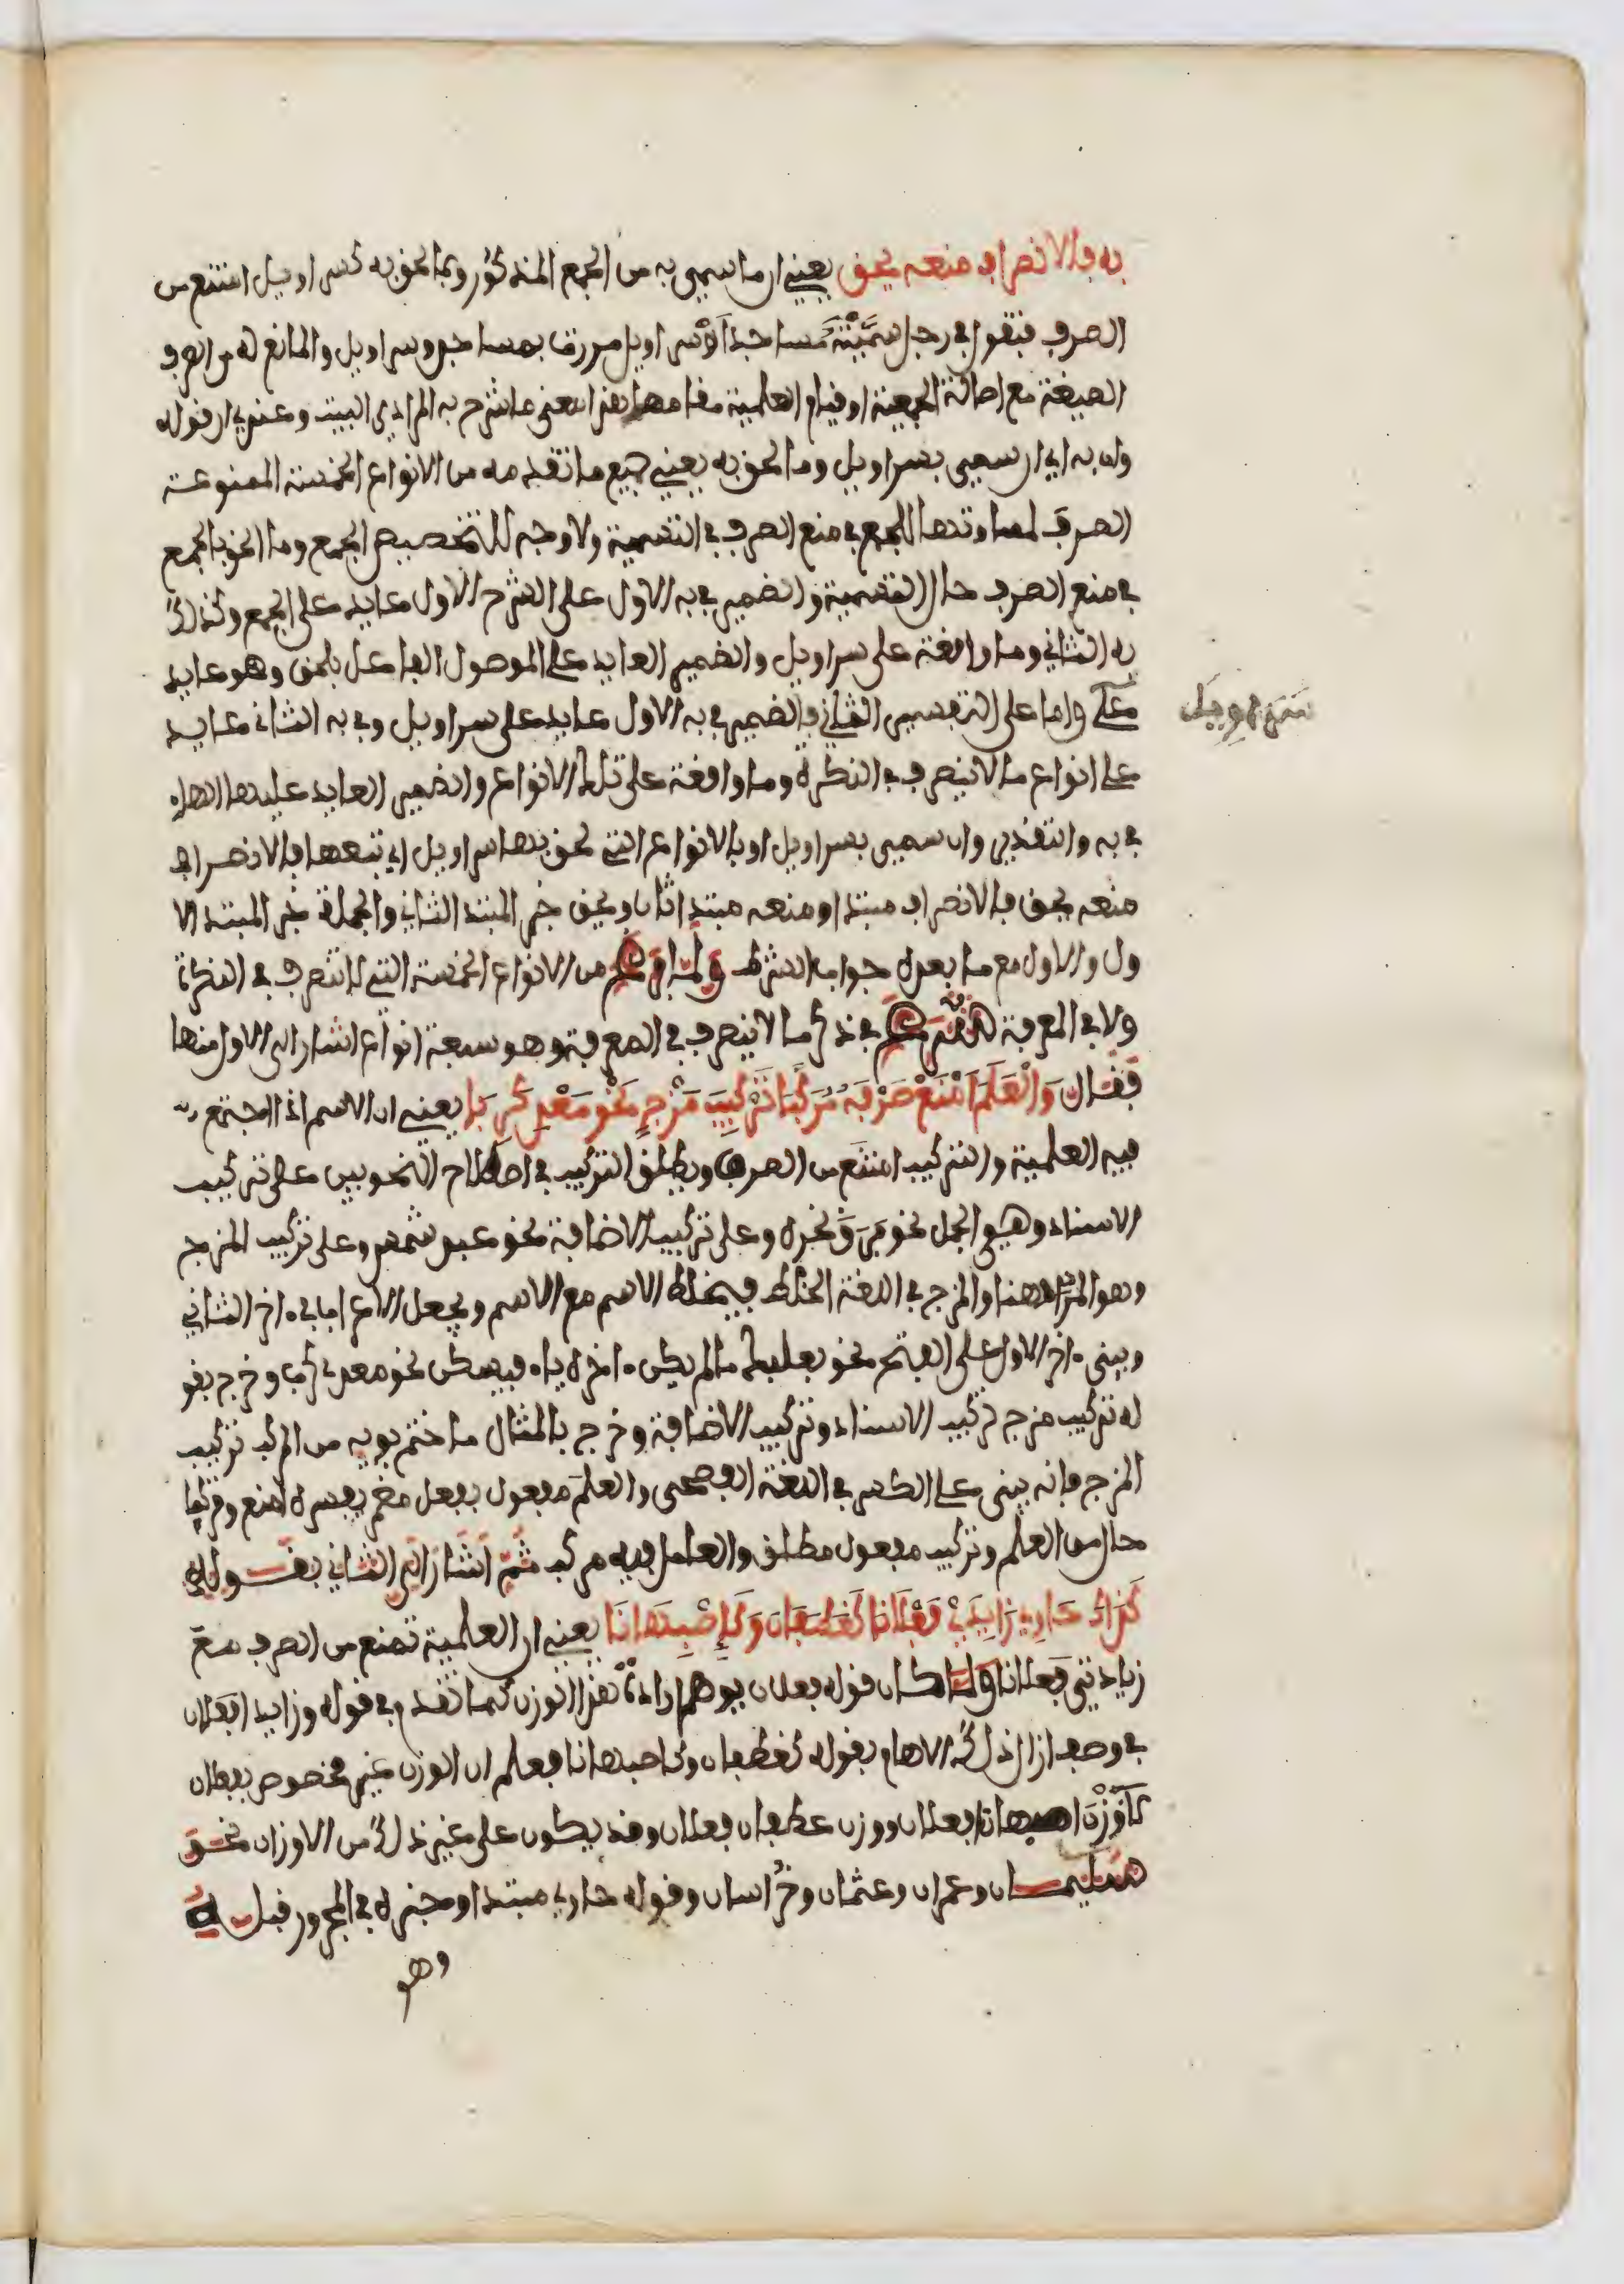 به فالانصراف منعه يحق يعني ان ما سمي به من الجمع المذكور وبما لحق به كسراويل امتنع من
الصرف فتقول في رجل سميته مساجدا او سراويل مررت بمساجد وسراويل والمانع له من الصرف
الصيغة مع اصالة الجمعية او قيام العلمية مقامها هذا معنى ما شرح به المرادي البيت وعندي ان قوله
وان به اي ان سمي بسراويل وما لحق به يعني جميع ما تقدمه من الانواع الخمسة الممنوعة
الصرف لمساوتها للجمع في منع الصرف في التسمية ولا وجه للتخصيص الجمع وما الحق بالجمع
في منع الصرف حال التسمية والضمير في به الاول على الشرح الاول عايد على الجمع وكذلك
به الثاني وما واقعة على سراويل والضمير العايد على الموصول الفاعل بلحق وهو عايد
على واما على التفسير الثاني فالضمير في به الاول عايد على سراويل وفي به الثاني عايد
سراويل
على انواع ما لا ينصرف في النكرة وما واقعة على تلك الانواع والضمير العايد عليها الهاء
في به والتقدير وان سمي بسراويل او بالانواع التي لحق بها سراويل اي تبعها فالانصراف
منعه يحق فالانصراف مبتدا ومنعه مبتدا ثان ويحق خبر المبتدا الثاني والجملة خبر المبتدا الا
ول والاول مع ما بعده جواب الشرط ولما فرغ من الانواع الخمسة التي لا تنصرف في النكرة
ولا في المعرفة شرع في ذكر ما لا ينصرف في المعرفة وهو سبعة انواع اشار الى الاول منها
فقال والعلم امنع صرفه مركبا تركيب مزج نحو معدي كربا يعني ان الاسم اذا اجتمع
فيه العلمية والتركيب امتنع من الصرف ويطلق التركيب في اصطلاح النحويين على تركيب
الاسناد وهي الجمل نحو برق نحره وعلى تركيب الاضافة نحو عبد شمس وعلى تركيب المزج
وهو المراد هنا والمزج في اللغة الخلط فيخلط الاسم مع الاسم ويجعل الاعراب في اخر الثاني
ويبنى اخر الاول على الفتح نحو بعلبك ما لم يكن اخره ياء فيسكن نحو معدي كرب وخرج بقو
له تركيب مزج تركيب الاسناد وتركيب الاضافة وخرج بالمثال ما ختم بويه من المركب تركيب
المزج فانه يبنى على الكسر في اللغة الفصحى والعلم مفعول بفعل مضمر يفسره امنع ومركبا
حال من العلم وتركيب مفعول مطلق والعامل فيه مركب ثم اشار الى الثاني بقوله
كذاك حاوي زايدي فعلانا كغطفان وكاصبهانا يعني ان العلمية تمنع من الصرف مع
زيادتي فعلانا ولما كان قوله فعلان يوهم ارادة هذا الوزن كما تقدم في قوله وزايدا فعلان
في وصف ازال ذلك الايهام بقوله كغطفان وكاصبهانا فعلم ان الوزن غير مخصوص بفعلان
اصبهانا فعلان ووزن غطفان فعلان وقد يكون على غير ذلك من الاوزان نحو
سليمان وعمران وعثمان وخراسان وقوله حاوي مبتدا وخبره في المجرور قبله
وهو